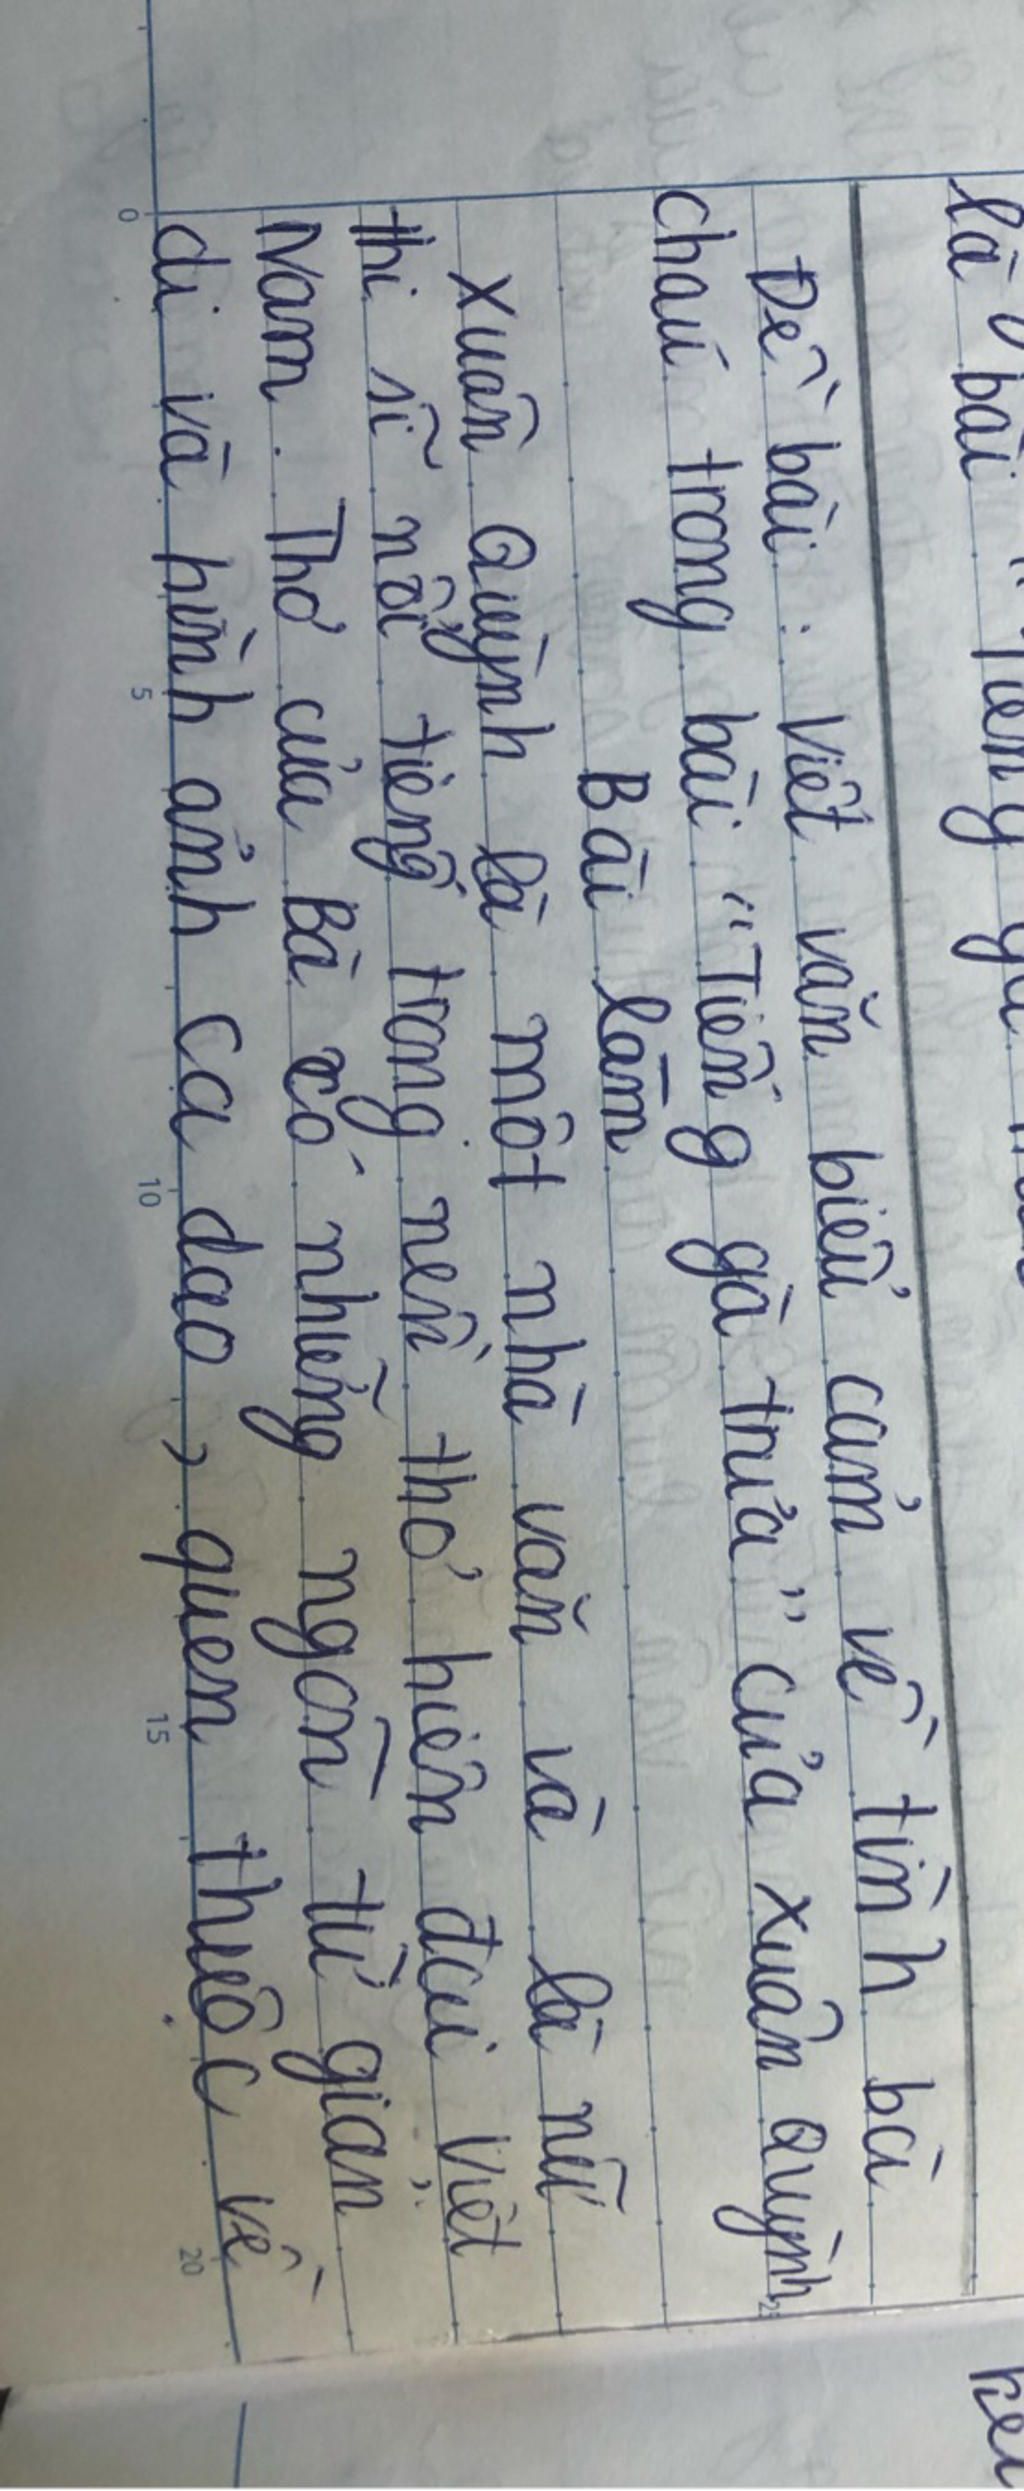 là ở bài "Tiếng gà
Đề bài: Viết văn biểu cảm về tình bà
cháu trong bài "Tiếng gà trưa" của Xuân Quỳnh
Bài làm
Xuân Quỳnh là một nhà văn và là nữ
thi sĩ nổi tiếng trong nền thơ hiện đại Việt
Nam. Thơ của Bà có những ngôn từ giản
di và hình ảnh ca dao, quen thuộc về
0 5 10 15 20